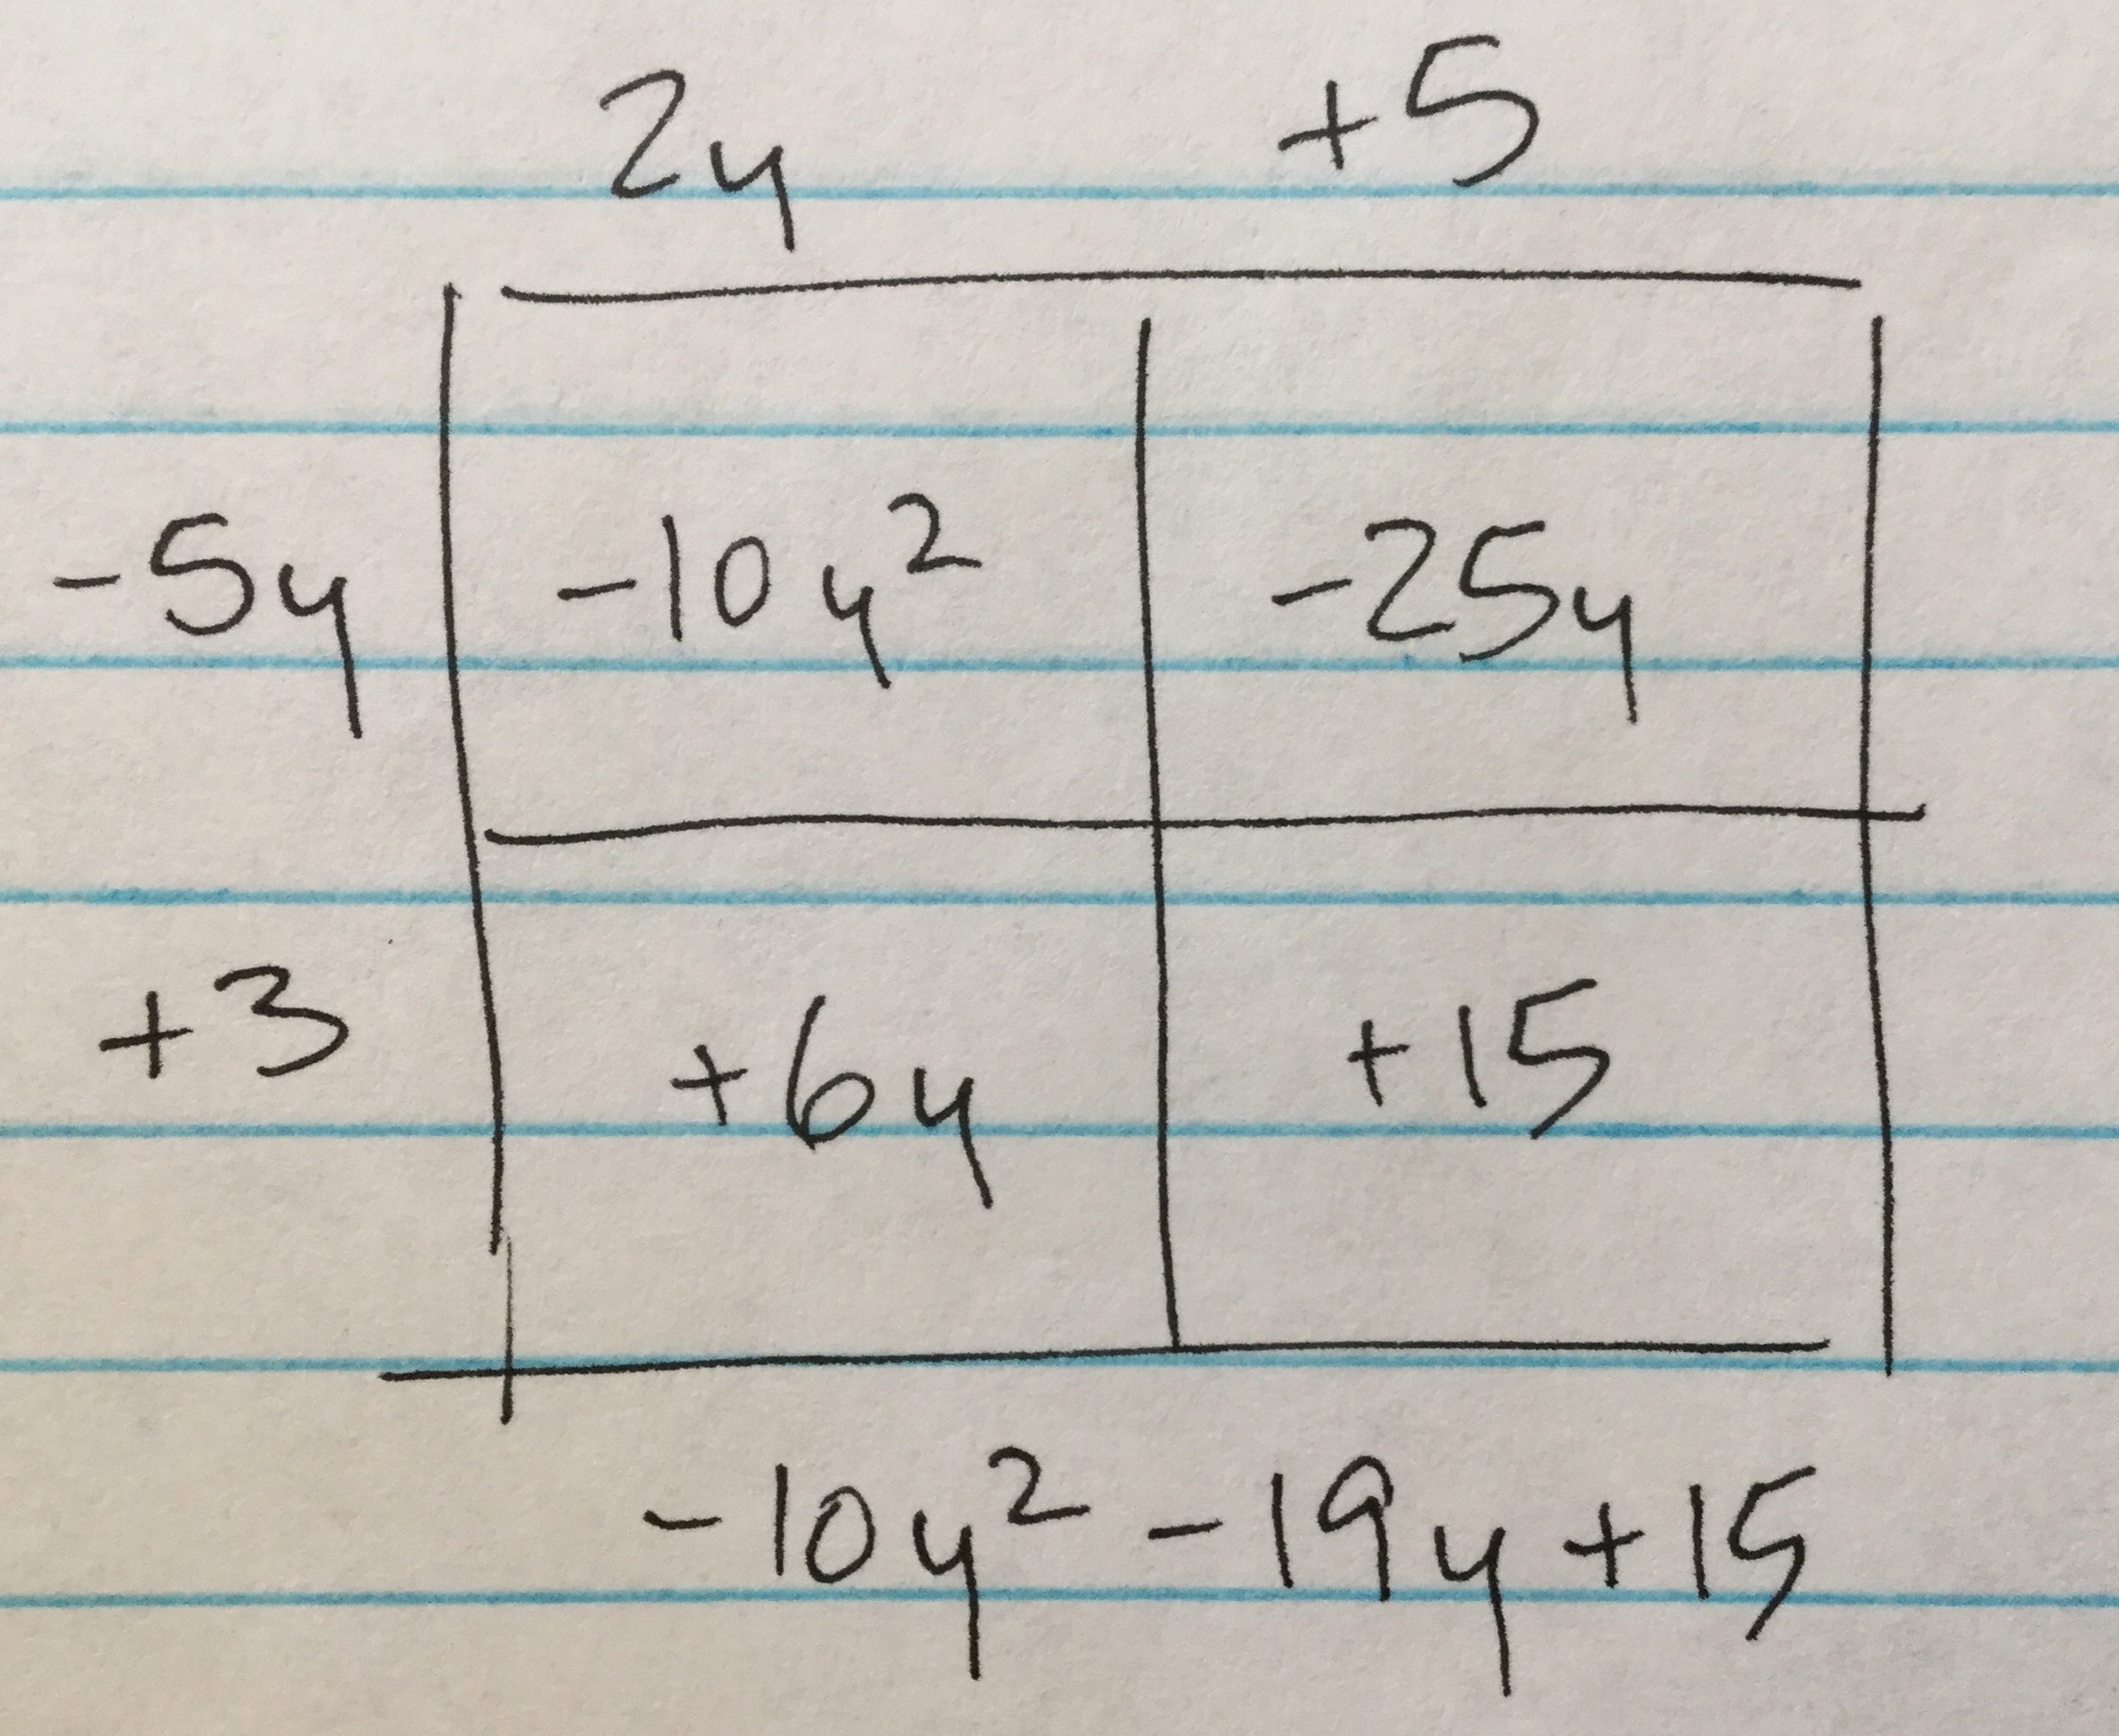 2y +5
-5y -10y² -25y
+3 +6y +15
-10y² -19y +15